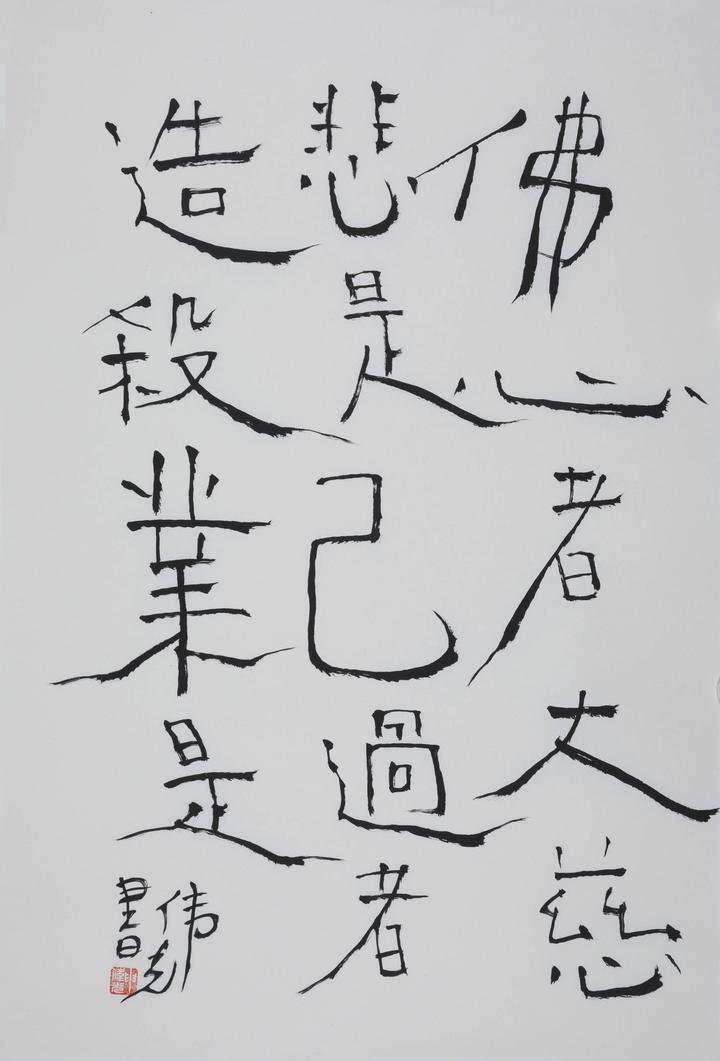 佛心者大慈
悲是己過者
造殺業是
伟光
書